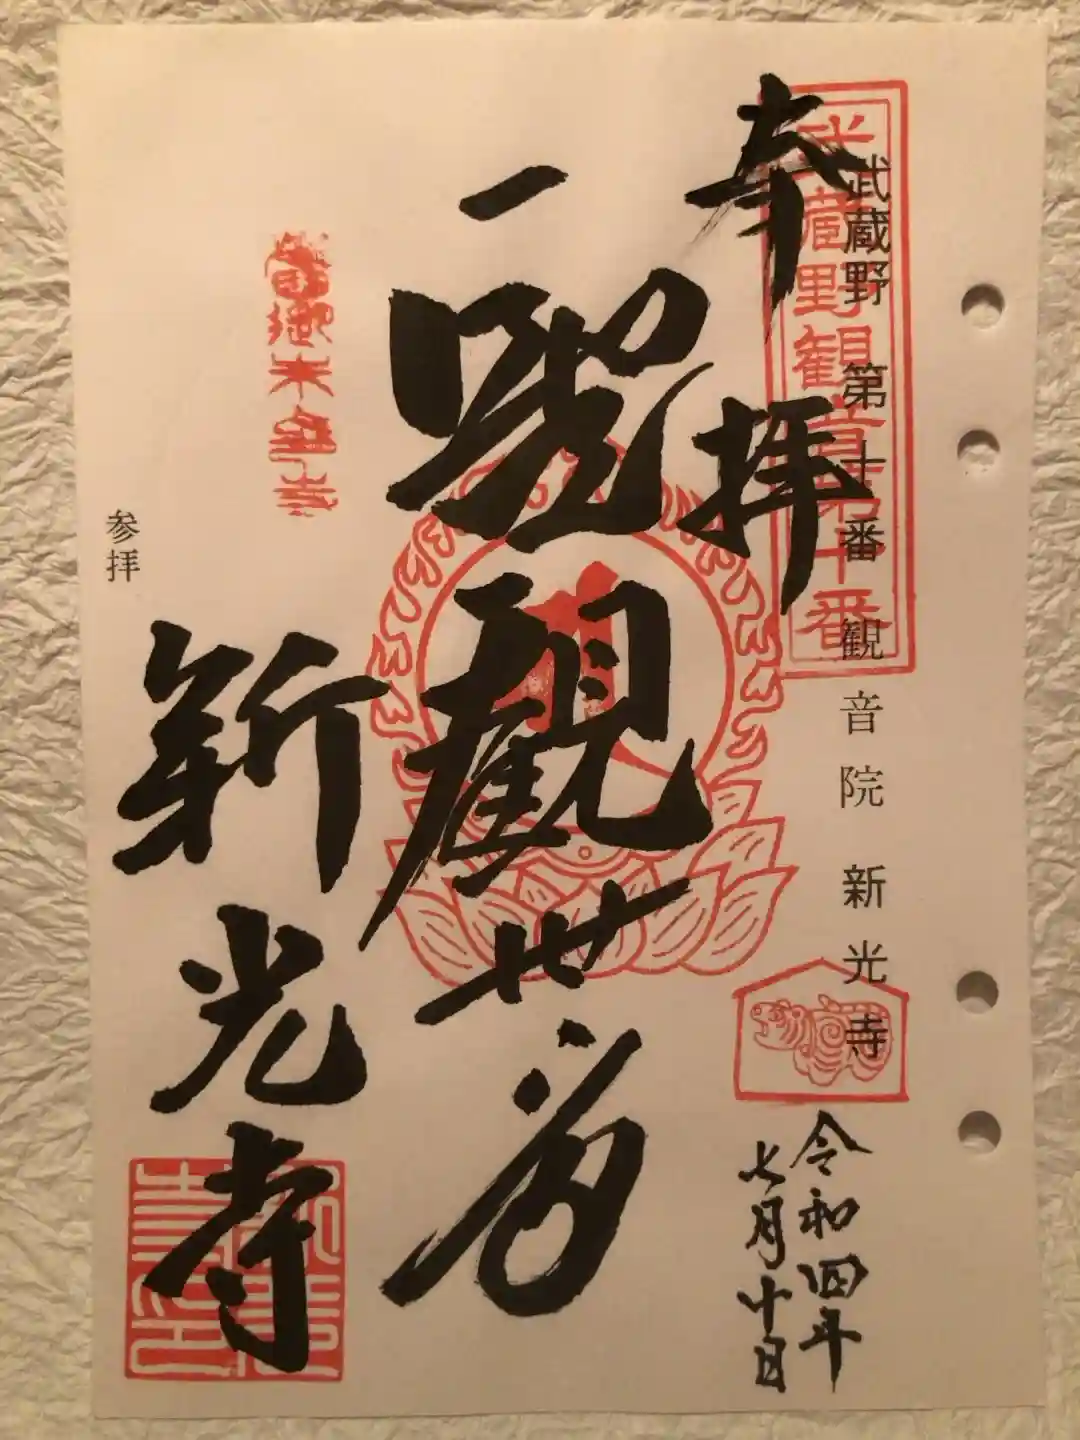 武蔵野観音第十番
武蔵野 第 十 番 観 音 院 新 光 寺
奉拝
令和四年
七月十日
一聖観世音
新光寺
参拝